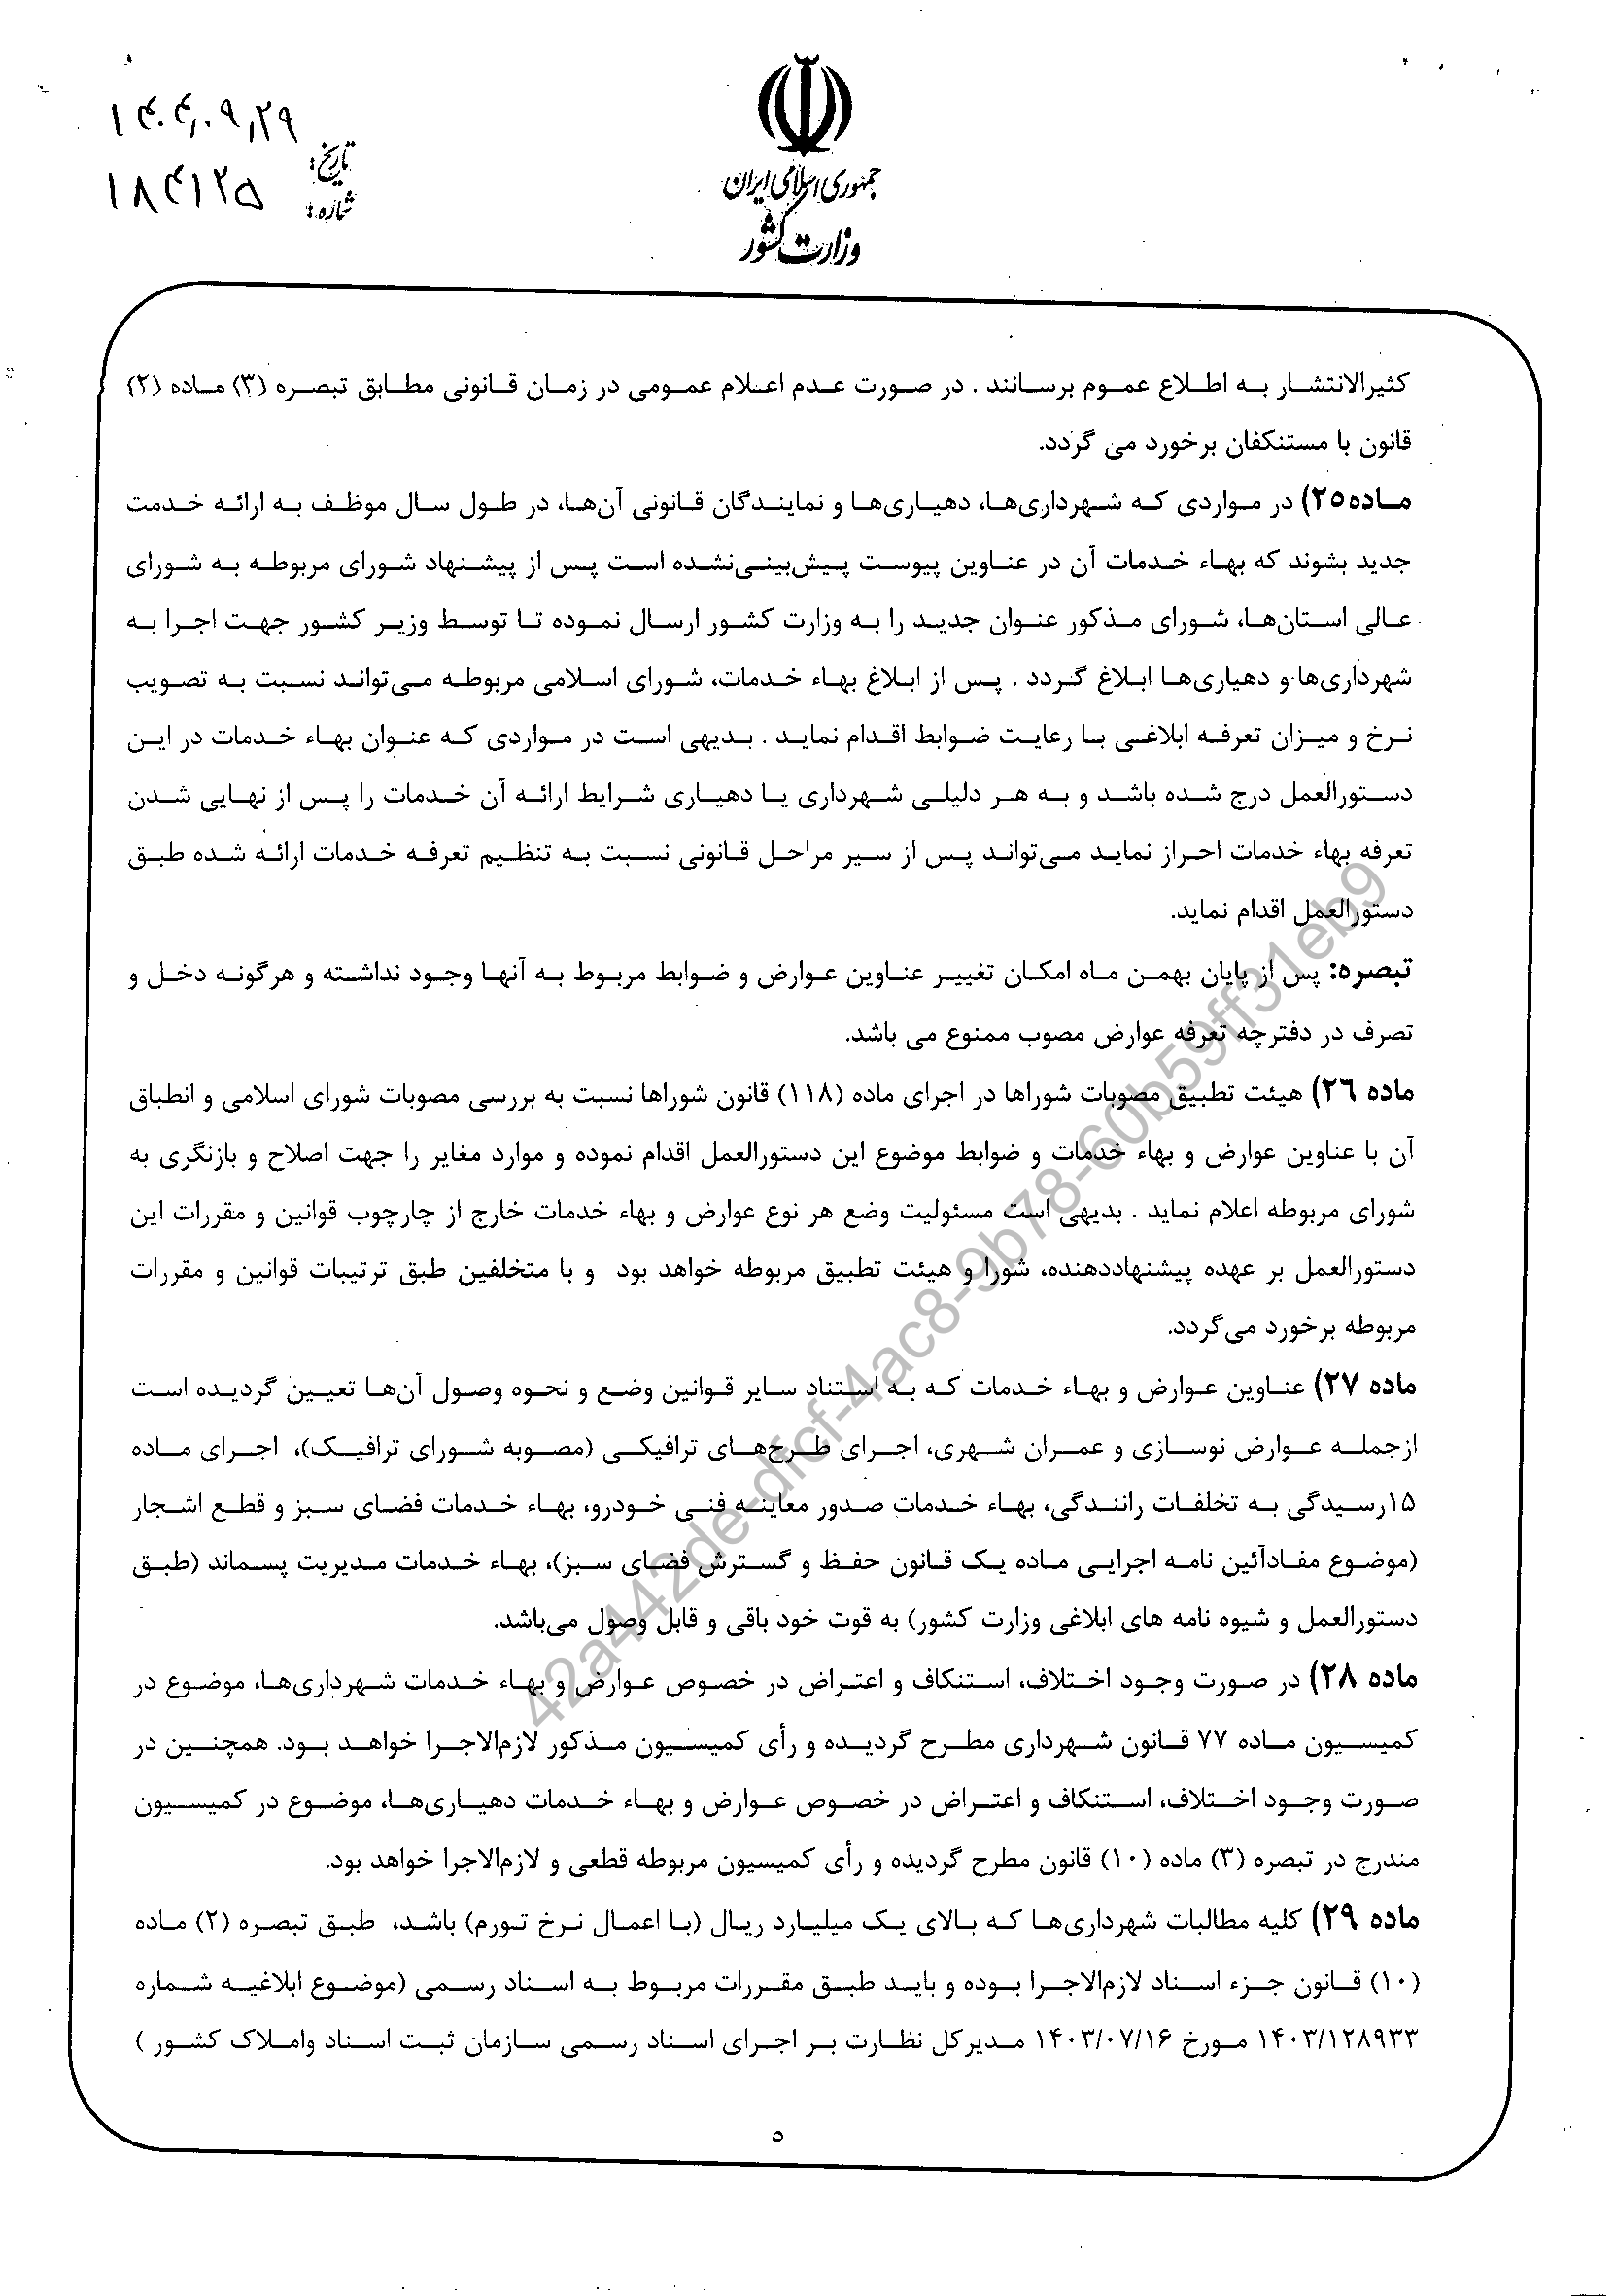 ۱۴۰۴,۰۹,۲۹
تاریخ:
۱۸۴۱۲۵
شماره:
جمهوری اسلامی ایران
وزارت کشور
کثیرالانتشار به اطلاع عموم برسانند . در صورت عدم اعلام عمومی در زمان قانونی مطابق تبصره (۳) ماده (۲)
قانون با مستنکفان برخورد می گردد.
ماده۲۵) در مواردی که شهرداری‌ها، دهیاری‌ها و نمایندگان قانونی آن‌ها، در طول سال موظف به ارائه خدمت
جدید بشوند که بهاء خدمات آن در عناوین پیوست پیش‌بینی‌نشده است پس از پیشنهاد شورای مربوطه به شورای
عالی استان‌ها، شورای مذکور عنوان جدید را به وزارت کشور ارسال نموده تا توسط وزیر کشور جهت اجرا به
شهرداری‌ها و دهیاری‌ها ابلاغ گردد . پس از ابلاغ بهاء خدمات، شورای اسلامی مربوطه می‌تواند نسبت به تصویب
نرخ و میزان تعرفه ابلاغی با رعایت ضوابط اقدام نماید . بدیهی است در مواردی که عنوان بهاء خدمات در این
دستورالعمل درج شده باشد و به هر دلیلی شهرداری یا دهیاری شرایط ارائه آن خدمات را پس از نهایی شدن
تعرفه بهاء خدمات احراز نماید می‌تواند پس از سیر مراحل قانونی نسبت به تنظیم تعرفه خدمات ارائه شده طبق
دستورالعمل اقدام نماید.
تبصره: پس از پایان بهمن ماه امکان تغییر عناوین عوارض و ضوابط مربوط به آنها وجود نداشته و هرگونه دخل و
تصرف در دفترچه تعرفه عوارض مصوب ممنوع می باشد.
ماده ۲۶) هیئت تطبیق مصوبات شوراها در اجرای ماده (۱۱۸) قانون شوراها نسبت به بررسی مصوبات شورای اسلامی و انطباق
آن با عناوین عوارض و بهاء خدمات و ضوابط موضوع این دستورالعمل اقدام نموده و موارد مغایر را جهت اصلاح و بازنگری به
شورای مربوطه اعلام نماید . بدیهی است مسئولیت وضع هر نوع عوارض و بهاء خدمات خارج از چارچوب قوانین و مقررات این
دستورالعمل بر عهده پیشنهاددهنده، شورا و هیئت تطبیق مربوطه خواهد بود و با متخلفین طبق ترتیبات قوانین و مقررات
مربوطه برخورد می‌گردد.
ماده ۲۷) عناوین عوارض و بهاء خدمات که به استناد سایر قوانین وضع و نحوه وصول آن‌ها تعیین گردیده است
ازجمله عوارض نوسازی و عمران شهری، اجرای طرح‌های ترافیکی (مصوبه شورای ترافیک)، اجرای ماده
۱۵رسیدگی به تخلفات رانندگی، بهاء خدمات صدور معاینه فنی خودرو، بهاء خدمات فضای سبز و قطع اشجار
(موضوع مفادآئین نامه اجرایی ماده یک قانون حفظ و گسترش فضای سبز)، بهاء خدمات مدیریت پسماند (طبق
دستورالعمل و شیوه نامه های ابلاغی وزارت کشور) به قوت خود باقی و قابل وصول می‌باشد.
ماده ۲۸) در صورت وجود اختلاف، استنکاف و اعتراض در خصوص عوارض و بهاء خدمات شهرداری‌ها، موضوع در
کمیسیون ماده ۷۷ قانون شهرداری مطرح گردیده و رأی کمیسیون مذکور لازم‌الاجرا خواهد بود. همچنین در
صورت وجود اختلاف، استنکاف و اعتراض در خصوص عوارض و بهاء خدمات دهیاری‌ها، موضوع در کمیسیون
مندرج در تبصره (۳) ماده (۱۰) قانون مطرح گردیده و رأی کمیسیون مربوطه قطعی و لازم‌الاجرا خواهد بود.
ماده ۲۹) کلیه مطالبات شهرداری‌ها که بالای یک میلیارد ریال (با اعمال نرخ تورم) باشد، طبق تبصره (۲) ماده
(۱۰) قانون جزء اسناد لازم‌الاجرا بوده و باید طبق مقررات مربوط به اسناد رسمی (موضوع ابلاغیه شماره
۱۴۰۳/۱۲۸۹۳۳ مورخ ۱۴۰۳/۰۷/۱۶ مدیرکل نظارت بر اجرای اسناد رسمی سازمان ثبت اسناد واملاک کشور )
۵
42a442de-dfcf-4ac8-9b78-60b59ff31eb9